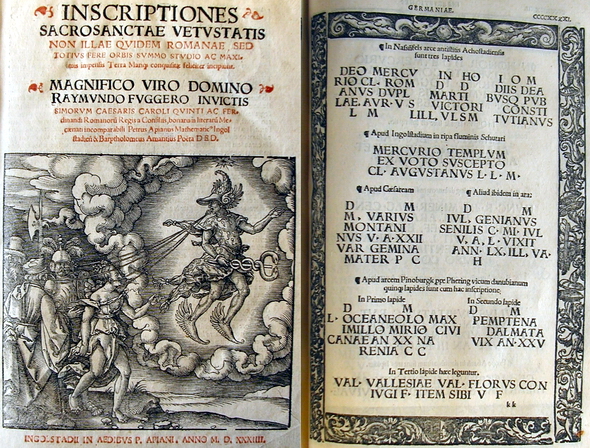 INSCRIPTIONES
SACROSANCTAE VETVSTATIS
NON ILLAE QVIDEM ROMANAE, SED
TOTIVS FERE ORBIS SVMMO STVDIO AC MAXI
mis impensis Terra Mariq; conquisitae feliciter incipiunt.
MAGNIFICO VIRO DOMINO
RAYMVNDO FVGGERO INVICTIS
SIMORVM CAESARIS CAROLI QVINTI AC FER
dinandi Romanorum Regis a Consiliis, bonarum literarum Me,
cœnati incomparabili Petrus Apianus Mathematicus Ingol
stadiensis & Barptholomeus Amantius Poeta D E D.
INGOLSTADII IN AEDIBVS P. APIANI, ANNO M. D. XXXIIII.
GERMANIAE.
CCCCXXXI.
¶ In Nassesels arce antistitis Achostadiensis
sunt tres lapides
DEO MERCV
RIO CL· ROM
ANVS DVPL
LAE· AVR· V S
L M
IN HO
D D
MARTI
VICTORI
L M, LL, VL SM
I O M
DIIS DEA
BVSQ PVB
CONSTI
TVTIANVS
¶ Apud Ingolstadium in ripa fluminis Schutari
MERCVRIO TEMPLVM
EX VOTO SVSCEPTO
CL· AVGVSTANVS L· L· M·
¶ Apud Gæsaream
D M
M, VARIVS
MONTANI
NVS V· A· XXII
VAR GEMINA
MATER P C
Aliud ibidem in ara:
D M
IVL, GENIANVS
SENILIS C· MI, IVL
V, A, L· VIXIT
ANN· LX, ILL, VA·
H
Apud arcem Pinoburgk ppe Phering vicum danubianum
quinq; lapides sunt cum hac inscriptione:
In Primo lapide
D M
L· OCEANEOLO MAX
IMILLO MIRIO CIVI
CANAE AN XX NA
RENIA C C
In Secundo lapide
D M
PEMPTENA
DALMATA
VIX AN· XXV
In Tertio lapide hæc leguntur.
VAL· VALLESIAE VAL· FLORVS CON
IVGI F· ITEM SIBI V F
kk